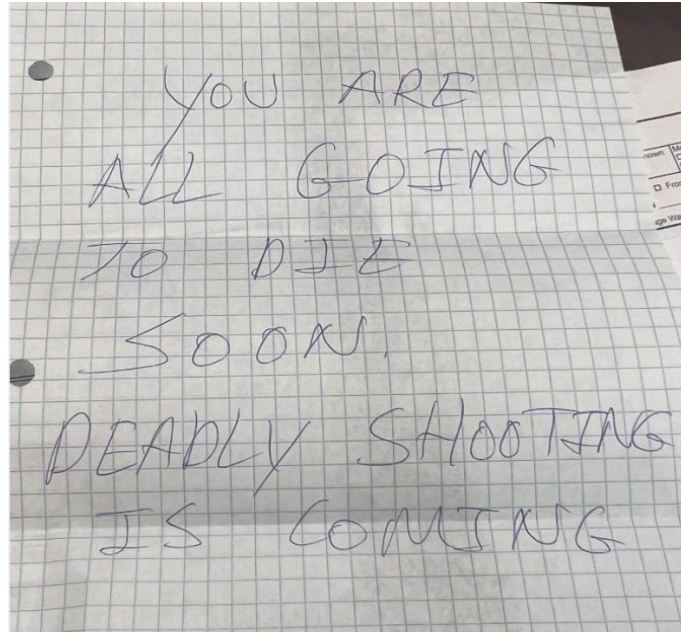 YOU ARE
ALL GOING
TO DIE
SOON.
DEADLY SHOOTING
IS COMING